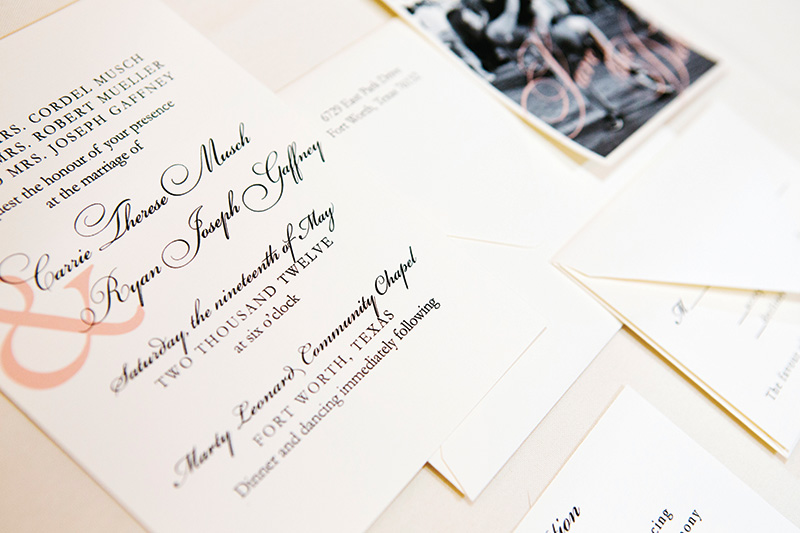 RS. CORDEL MUSCH
MRS. ROBERT MUELLER
D MRS. JOSEPH GAFFNEY
uest the honour of your presence
at the marriage of
Carrie Therese Musch
&
Ryan Joseph Gaffney
Saturday, the nineteenth of May
TWO THOUSAND TWELVE
at six o'clock
Marty Leonard Community Chapel
FORT WORTH, TEXAS
Dinner and dancing immediately following
6729 East Park Drive
Fort Worth, Texas
Save the Date
M
The favour
tion
cing
mony